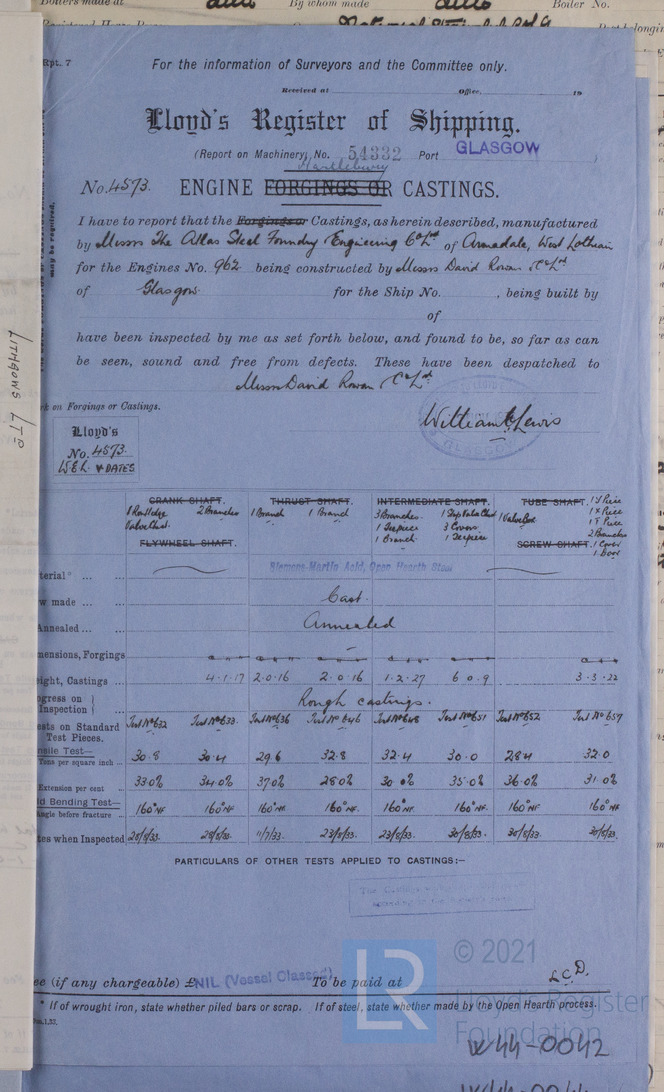 Boilers made at ditto By whom made ditto Boiler No.
Rpt. 7
For the information of Surveyors and the Committee only.
Received at Office, 19
Lloyd's Register of Shipping.
(Report on Machinery, No. 54332 Port GLASGOW
Hartlebury
No. 4573. ENGINE FORGINGS OR CASTINGS.
I have to report that the Forgings or Castings, as herein described, manufactured
by Messrs The Atlas Steel Foundry Engineering Co Ld of Armadale, West Lothian
for the Engines No. 962 being constructed by Messrs David Rowan & Co Ld
of Glasgow. for the Ship No. , being built by
of
have been inspected by me as set forth below, and found to be, so far as can
be seen, sound and free from defects. These have been despatched to
Messrs David Rowan & Co Ld
William Lewis
rk on Forgings or Castings.
Lloyd's
No. 4573.
W.E.L. & DATES
LITHGOWS LTD
may be required.
CRANK SHAFT. THRUST SHAFT. INTERMEDIATE SHAFT. TUBE SHAFT.
2 Branches 1 Branch 1 Branch 3 Branches 1 Valve Box 1 Y Piece
Valve Chest. 1 Teepiece 3 Covers 1 T Piece
1 Branch 1 Teepiece 2 Branches
FLYWHEEL SHAFT. SCREW SHAFT. 1 Cover
1 Door
terial* ... Siemens-Martin Acid, Open Hearth Steel
w made ... Cast.
Annealed ... Annealed
mensions, Forgings
ight, Castings ... 4·1·17 2·0·16 2·0·16 1·2·27 6·0·9 3·3·22
ogress on Inspection Rough castings.
sts on Standard Test Pieces. Test No 632 Test No 633. Test No 636 Test No 646 Test No 648 Test No 651 Test No 652 Test No 657
nsile Test—
Tons per square inch ... 30.8 30.4 29.6 32.8 32.4 30.0 28.4 32.0
Extension per cent ... 33.0% 34.0% 37.0% 28.0% 30.0% 35.0% 36.0% 31.0%
ld Bending Test—
Angle before fracture ... 160° NF 160° NF. 160° NF. 160° NF. 160° NF 160° NF. 160° NF 160° NF
tes when Inspected 23/8/33 23/8/33. 30/8/33. 30/8/33
PARTICULARS OF OTHER TESTS APPLIED TO CASTINGS:—
ee (if any chargeable) £ NIL (Vessel Classed) To be paid at L.C.D.
* If of wrought iron, state whether piled bars or scrap. If of steel, state whether made by the Open Hearth process.
LR
© 2021
Lloyd's Register
Foundation
W44-0042